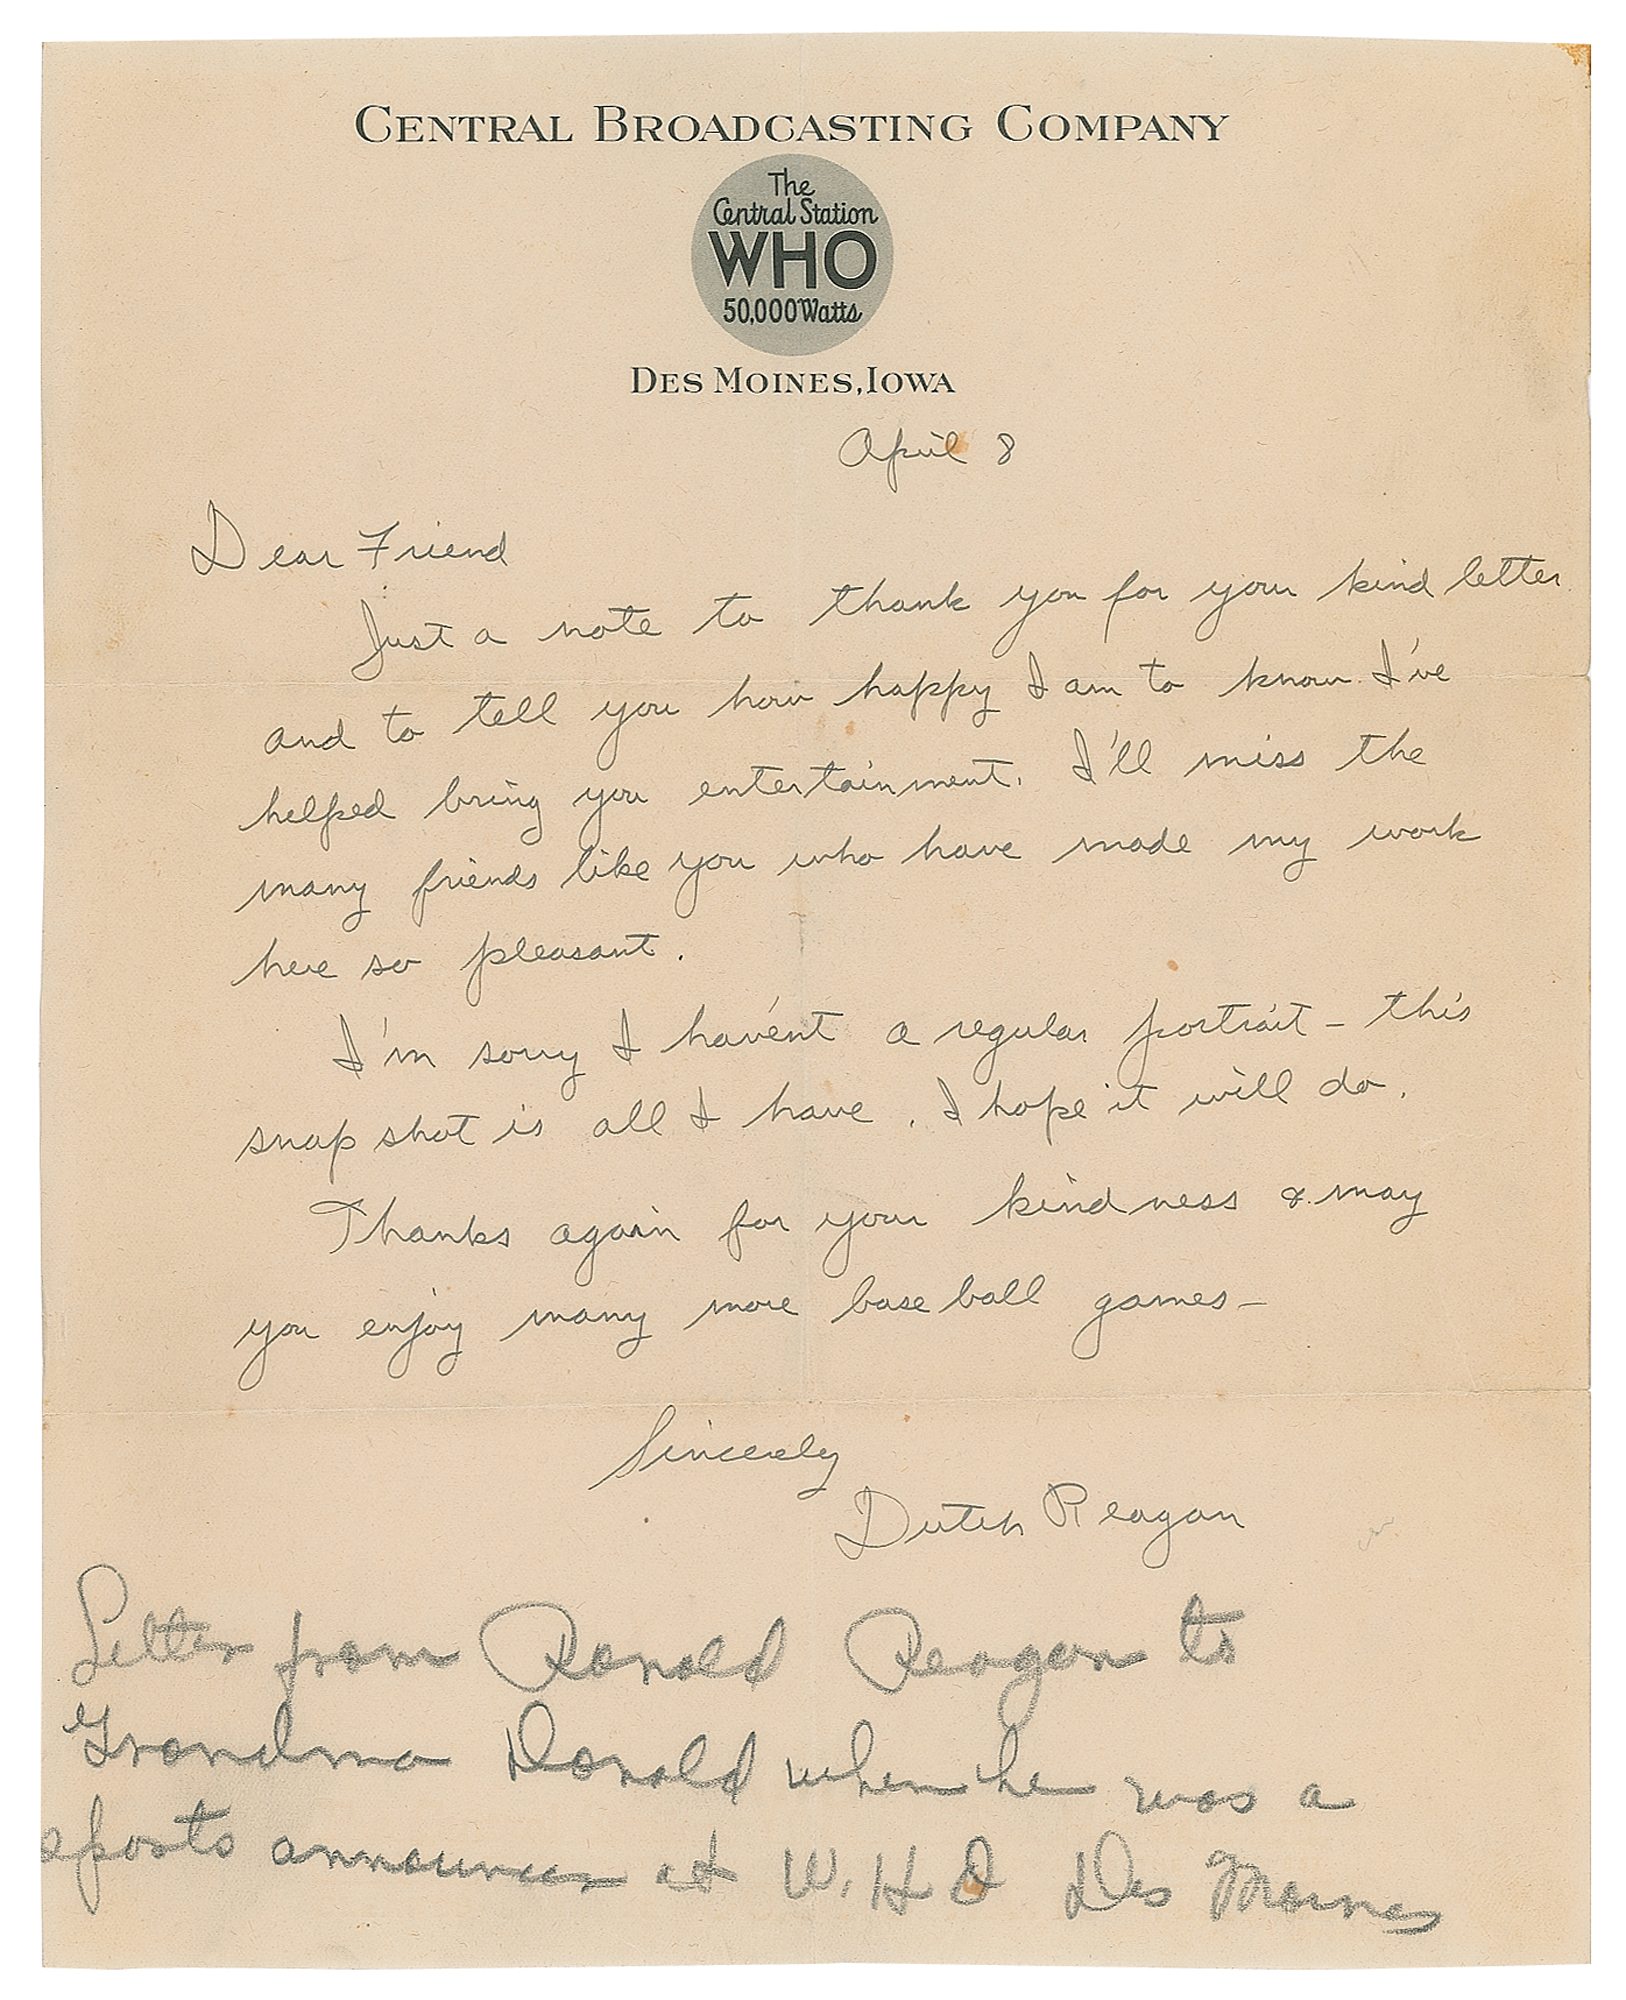 CENTRAL BROADCASTING COMPANY
The
Central Station
WHO
50,000 Watts
DES MOINES, IOWA
April 8
Dear Friend
Just a note to thank you for your kind letter
and to tell you how happy I am to know I've
helped bring you entertainment. I'll miss the
many friends like you who have made my work
here so pleasant.
I'm sorry I hav'ent a regular portrait – this
snap shot is all I have. I hope it will do.
Thanks again for your kindness & may
you enjoy many more base ball games –
Sincerely
Dutch Reagan
Letter from Ronald Reagan to
Grandma Donald when he was a
sports announcer at W.H.O Des Moines